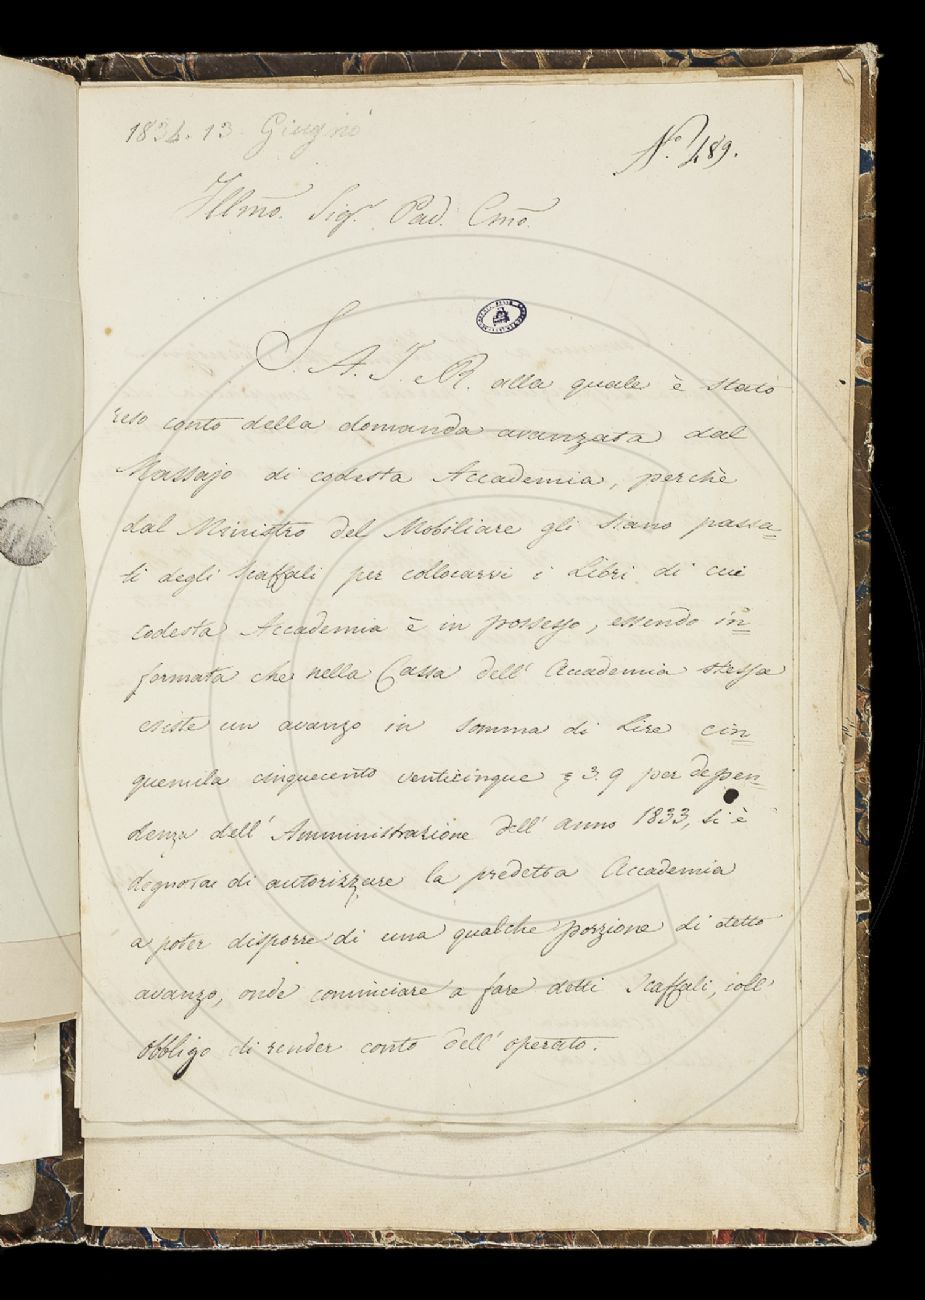 1834. 13. Giugno
N.° 489.
Illmo. Sig.r Pad. Cmo.
S. A. I. R. alla quale è stato
reso conto della domanda avanzata dal
Massajo di codesta Accademia, perchè
dal Ministro del Mobiliare gli siano passa=
ti degli Scaffali per collocarvi i Libri di cui
codesta Accademia è in possesso, essendo in=
formata che nella Cassa dell' Accademia stessa
esiste un avanzo in somma di Lire cin=
quemila cinquecento venticinque 3. 9 per depen=
denza dell' Amministrazione dell' anno 1833, si è
degnata di autorizzare la predetta Accademia
a poter disporre di una qualche porzione di detto
avanzo, onde cominciare a fare detti Scaffali, coll'
obbligo di render conto dell' operato.